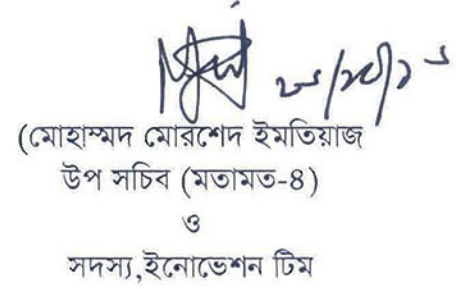 (মোহাম্মদ মোরশেদ ইমতিয়াজ
উপ সচিব (মতামত-৪)
ও
সদস্য,ইনোভেশন টিম